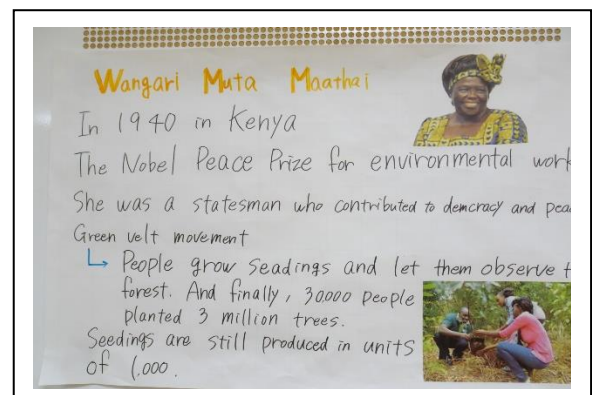 Wangari Muta Maathai
In 1940 in Kenya
The Nobel Peace Prize for environmental work
She was a statesman who contributed to demcracy and pea
Green velt movement
↳ People grow seadings and let them observe t
forest. And finally, 30.000 people
planted 3 million trees.
Seedings are still produced in units
of 1.000.